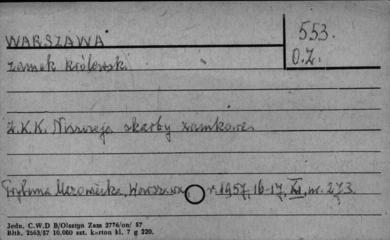 WARSZAWA
553.
zamek królewski
O.Z.
Ż.K.K. Niszczeją skarby zamkowe.
Trybuna Mazowiecka, Warszawa r. 1957, 16-17, XI, nr. 273.
Jedn. C.W.D B/Olsztyn Zam 2776/on/ 57
Bltk. 2563/57 10.000 szt. karton kl. 7 g 220.